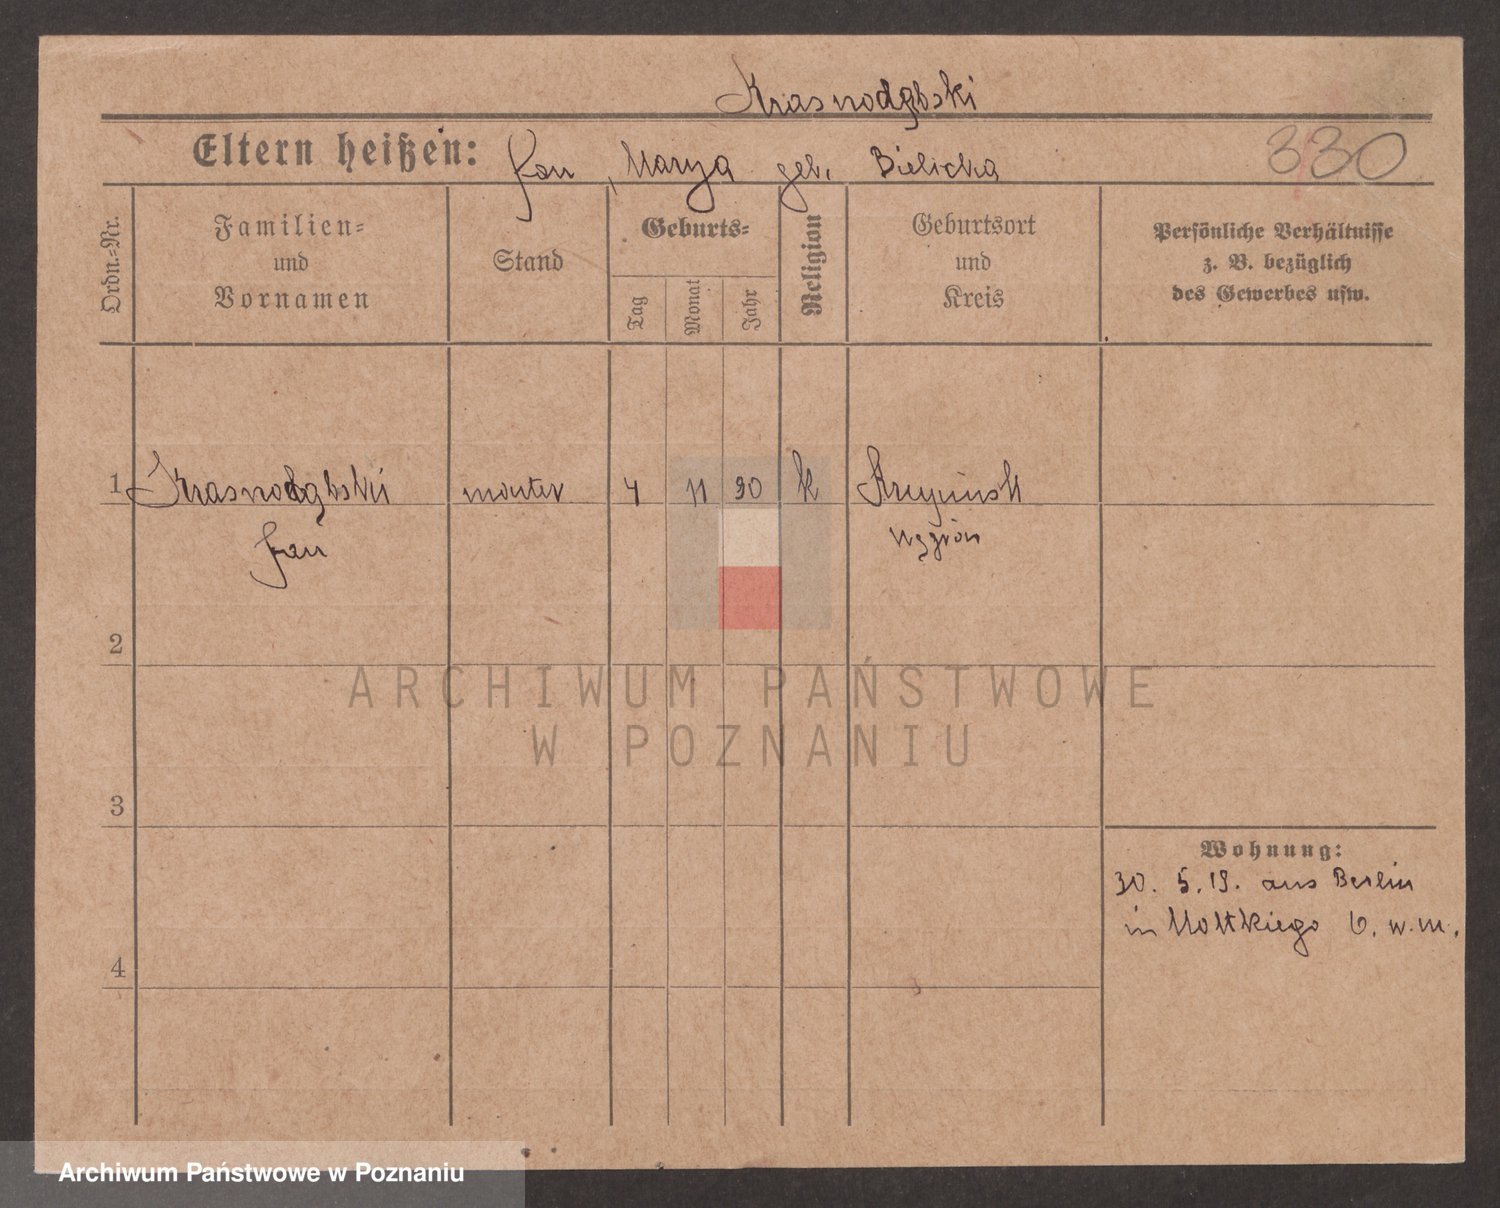 Krasnodębski
Eltern heißen: Jan, Marya geb. Bielicka
330
Ordn.-Nr.
Familien-
und
Vornamen
Stand
Geburts-
Tag
Monat
Jahr
Religion
Geburtsort
und
Kreis
Persönliche Verhältnisse
z. B. bezüglich
des Gewerbes usw.
1 Krasnodębski monter 4 11 90 k
Jan Węgrów
2
ARCHIWUM PAŃSTWOWE
W POZNANIU
3
Wohnung:
30. 5. 19. aus Berlin
in Moltkiego 6. w. m.
4
Archiwum Państwowe w Poznaniu